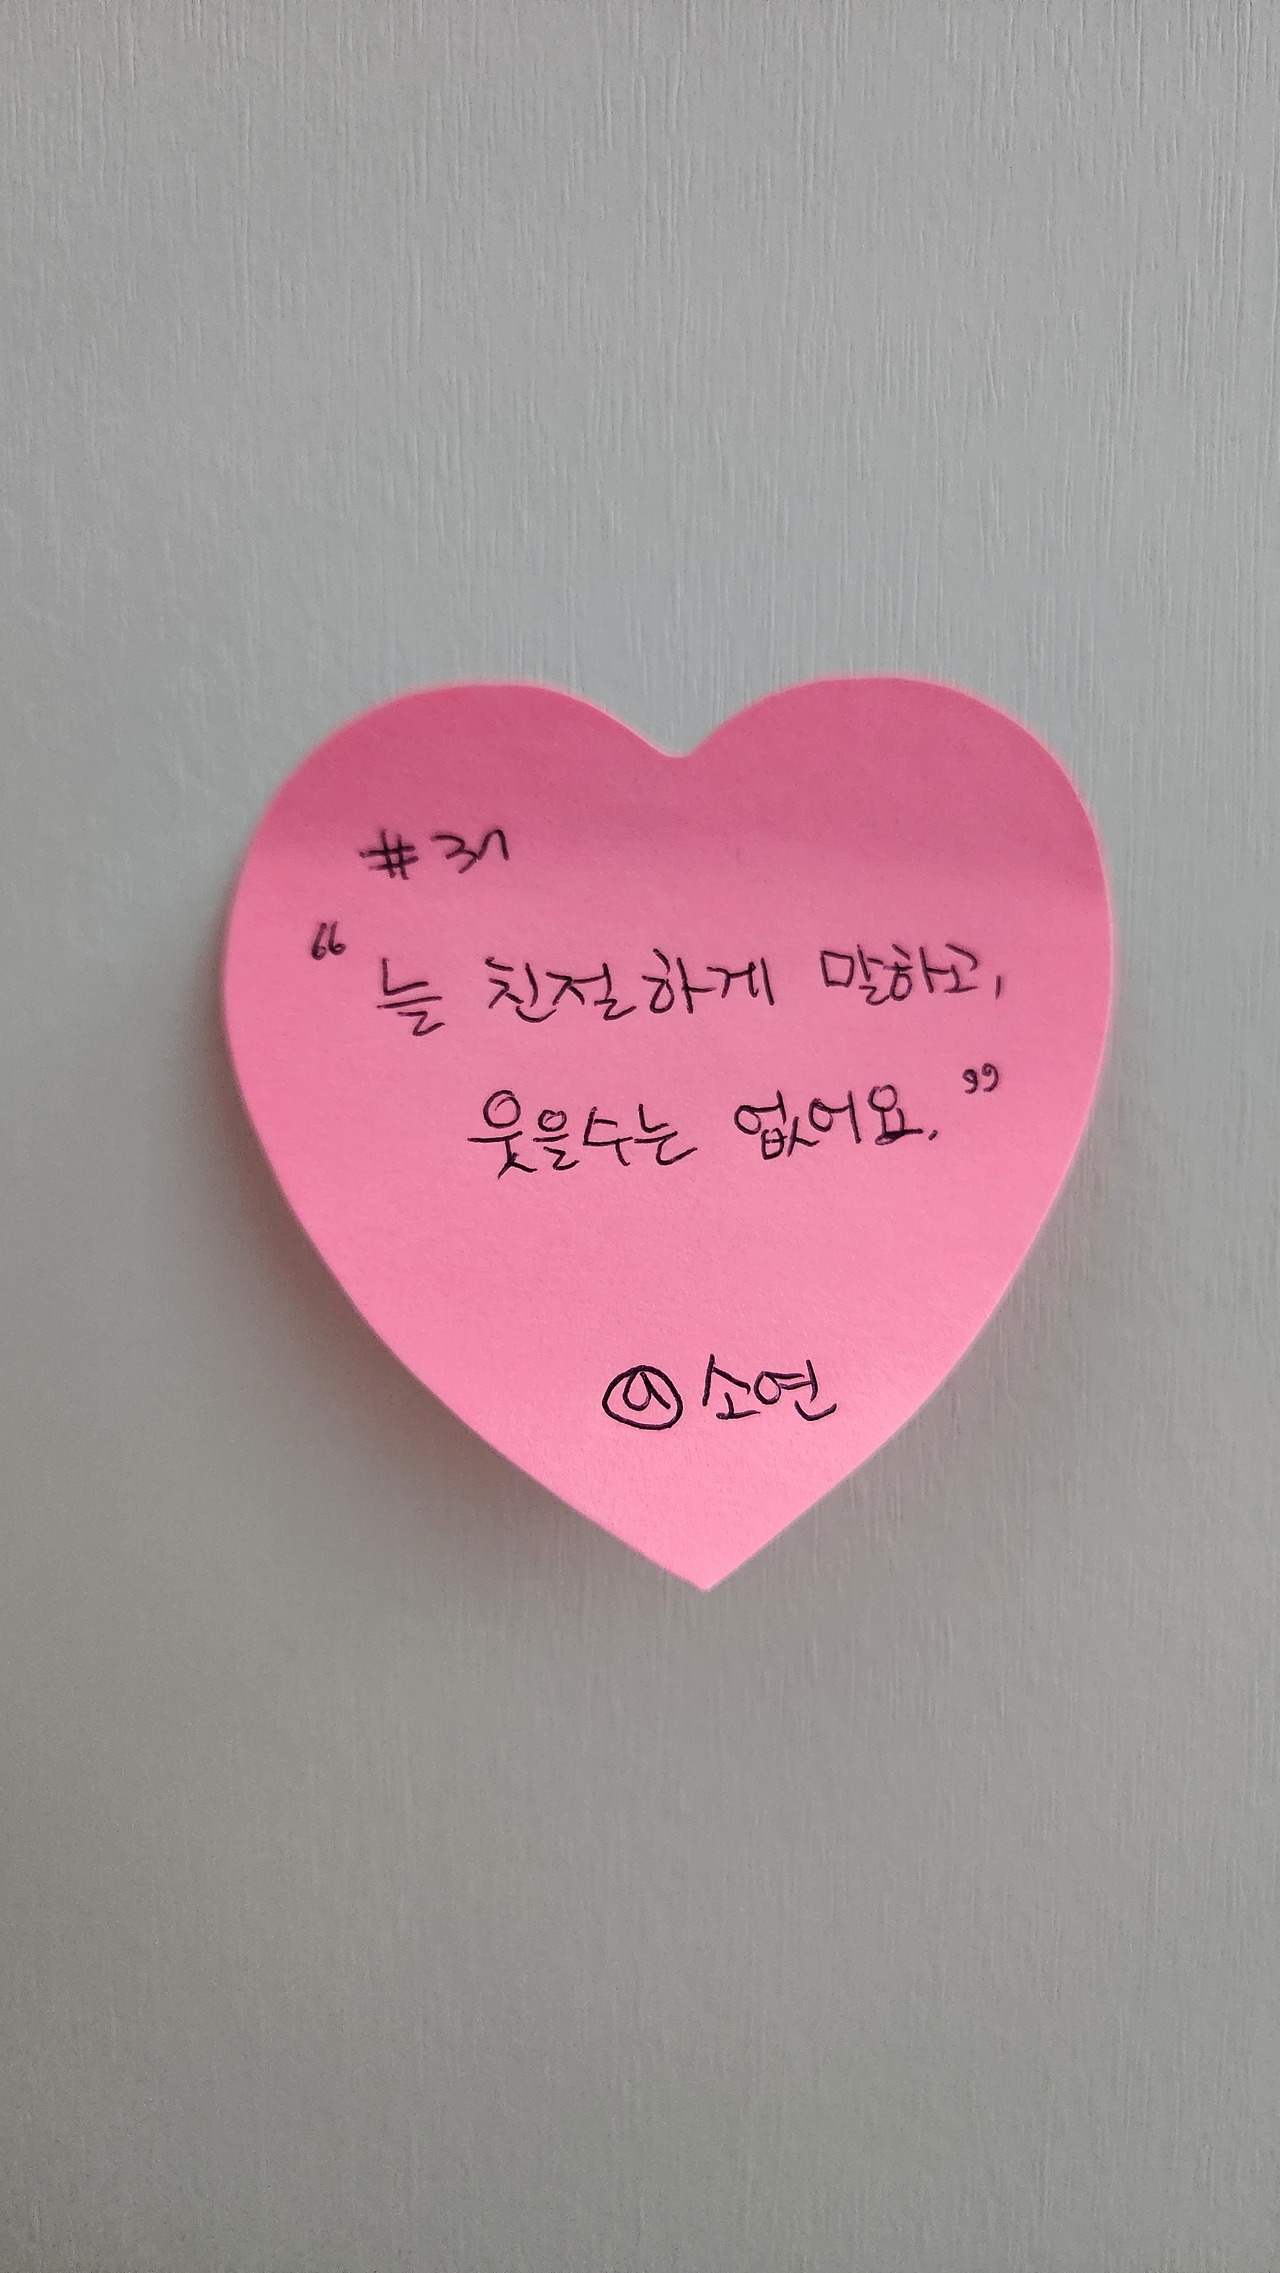 #37
“늘 친절하게 말하고,
웃을수는 없어요.”
@소연